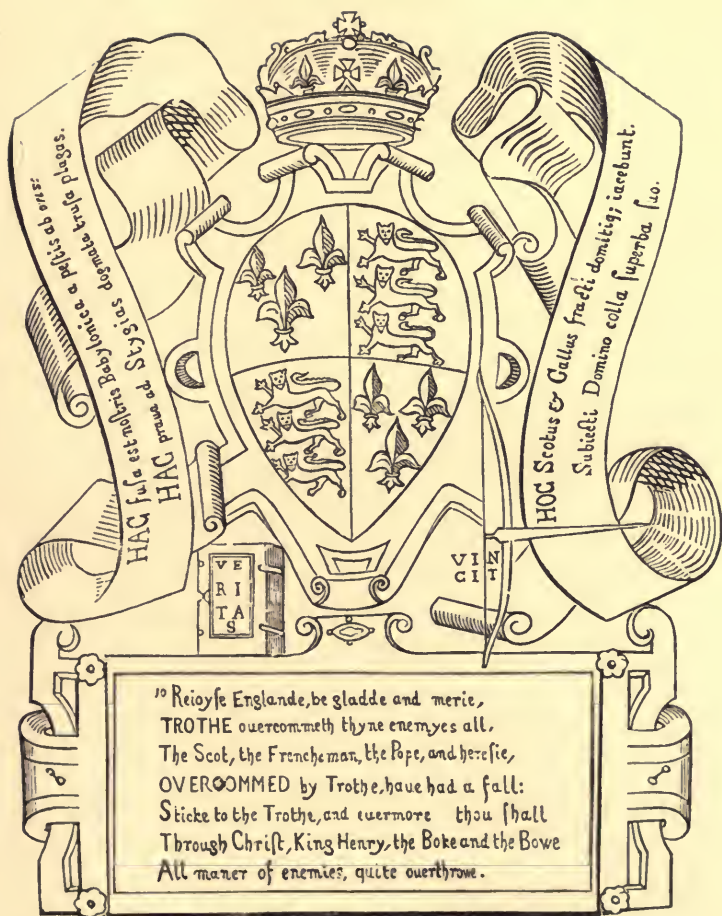 HAC fuſa est noſtris Babylonica peſtis ab oris:
HAC praua ad Stygias dogmata truſa plagas.
HOC Scotus & Gallus fracti domitiq; iacebunt.
Subiecti Domino colla ſuperba ſuo.
VE
RI
TA
S
VIN
CIT
Io Reioyſe Englande, be gladde and merie,
TROTHE ouercommeth thyne enemyes all,
The Scot, the Frencheman, the Pope, and hereſie,
OVERCOMMED by Trothe, haue had a fall:
Sticke to the Trothe, and euermore thou ſhall
Through Chriſt, King Henry, the Boke and the Bowe
All maner of enemies, quite ouerthrowe.